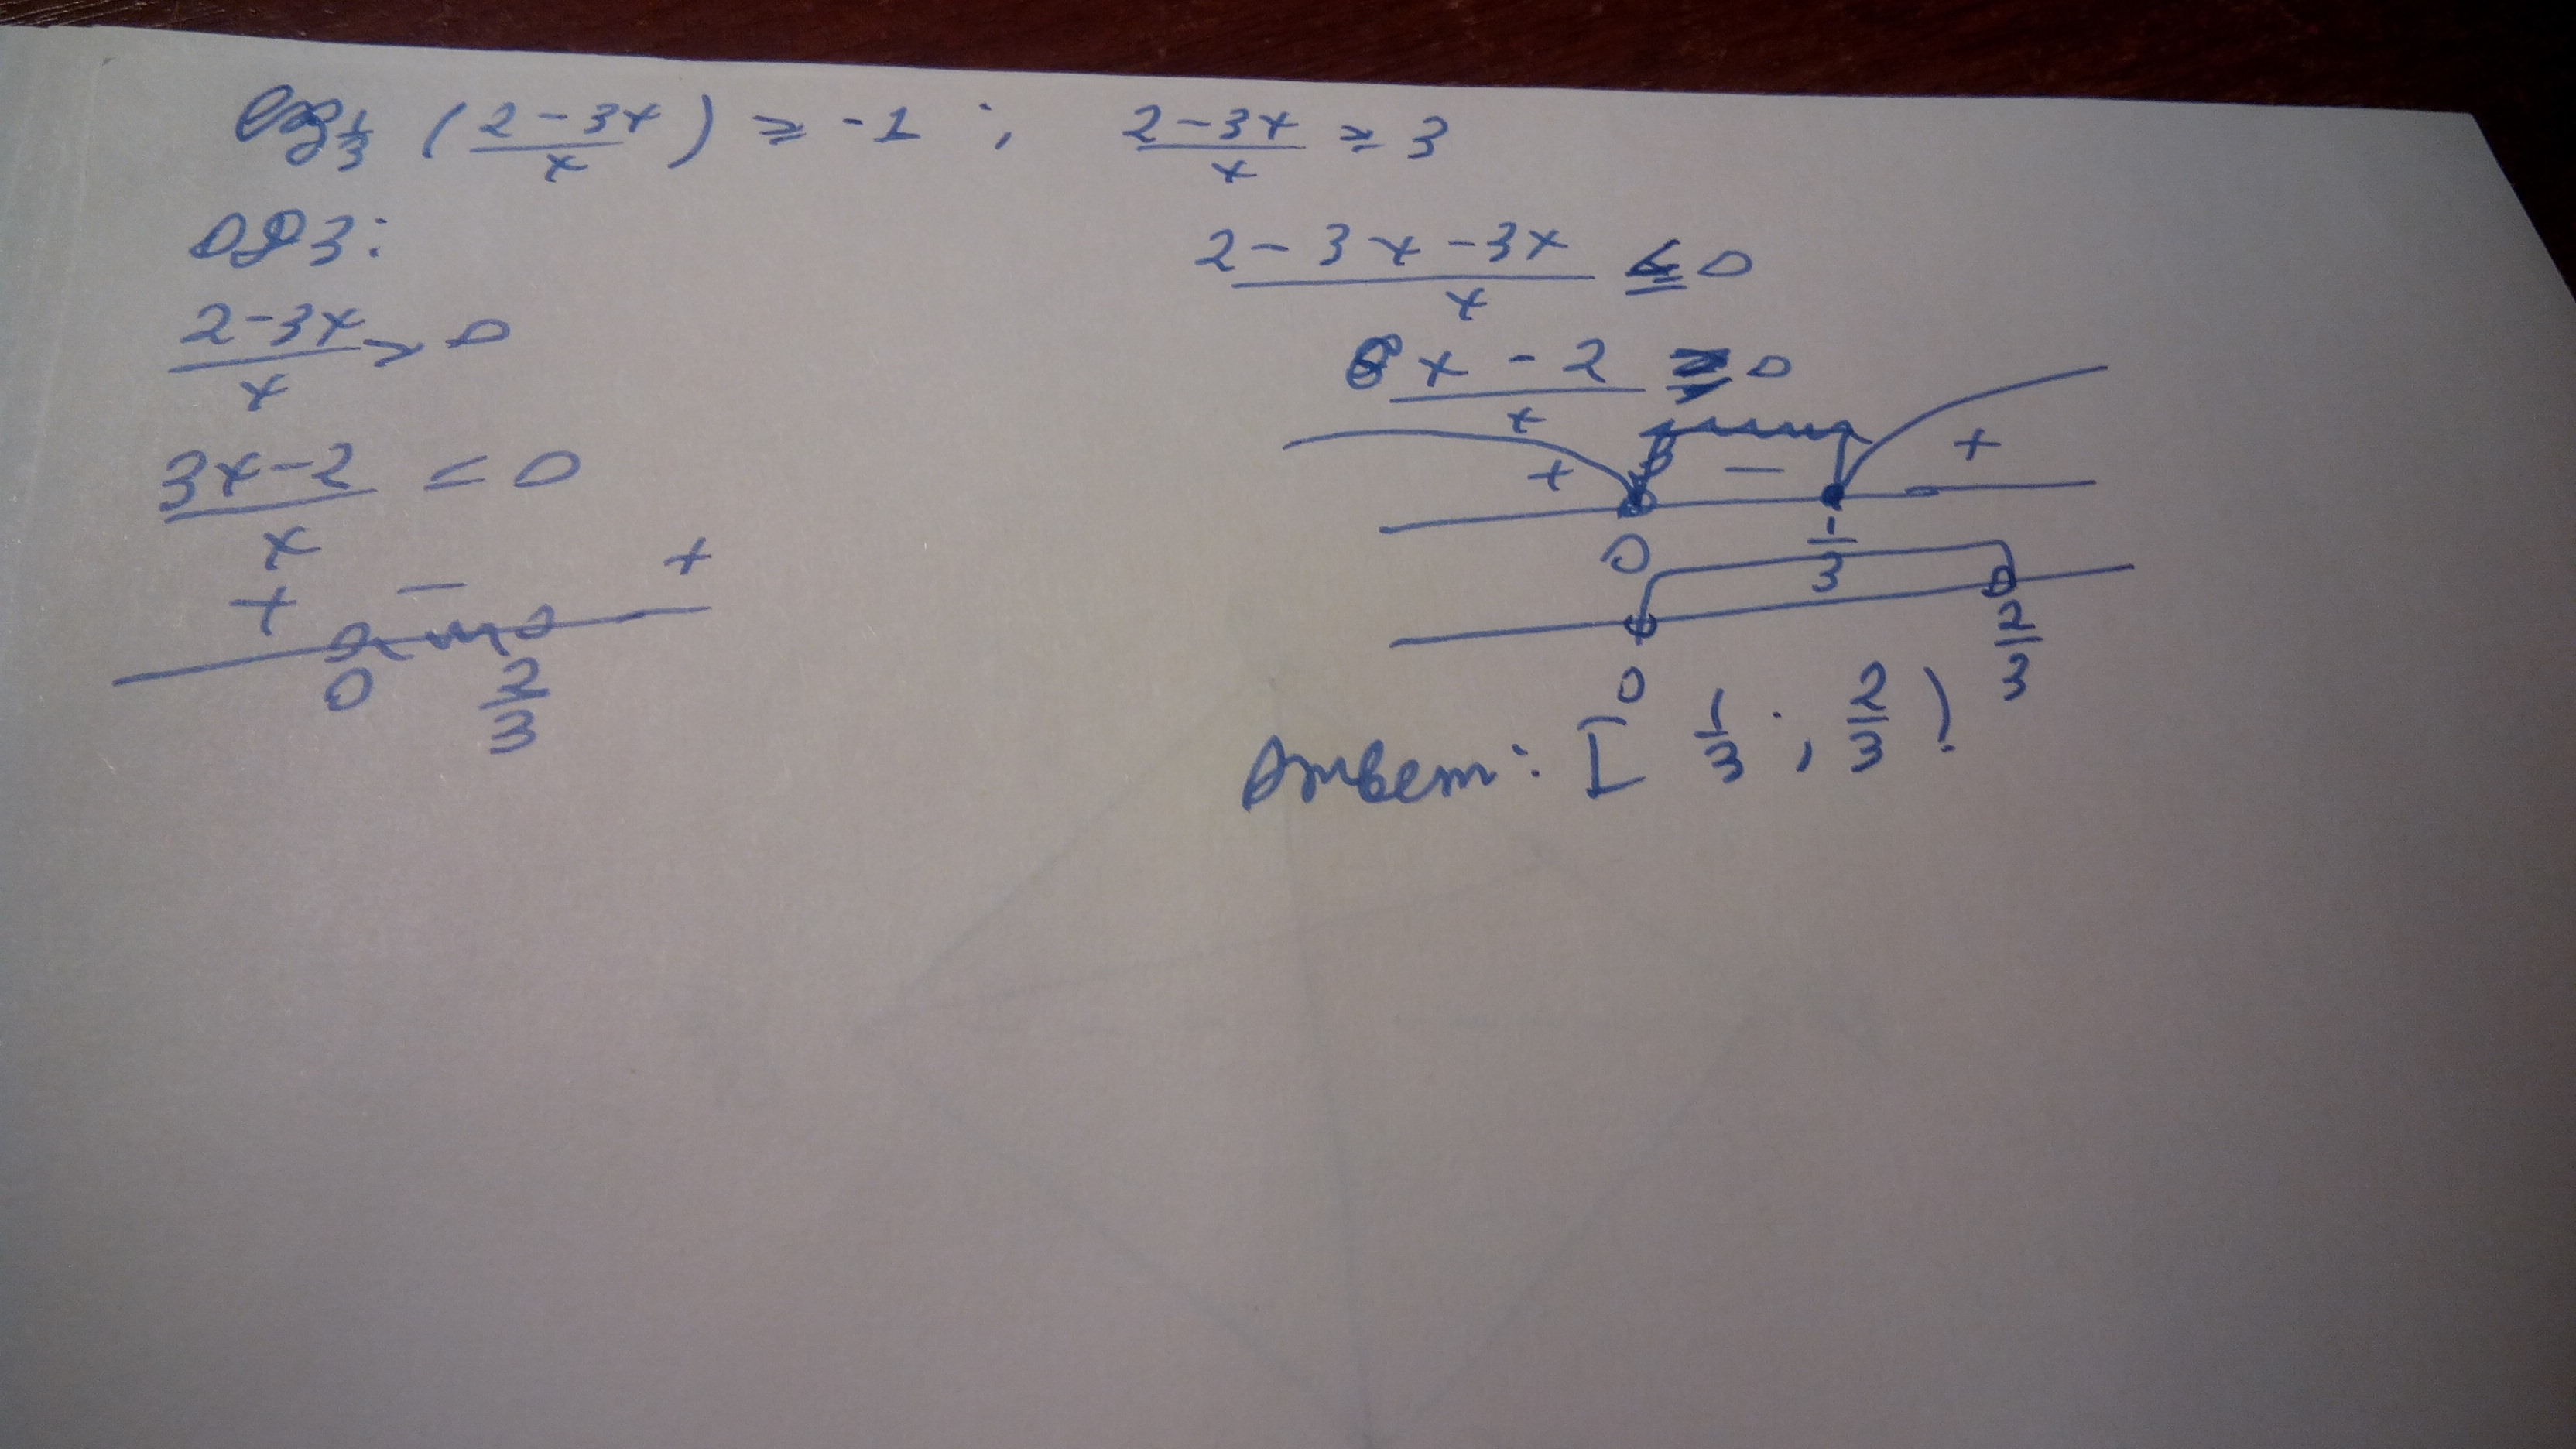 log 1/3 ( (2-3x)/x ) ≥ -1 ; (2-3x)/x ≥ 3
ОДЗ:
(2-3x)/x > 0
(3x-2)/x < 0
+ − +
0 2/3
(2-3x-3x)/x ≤ 0
(6x-2)/x ≥ 0
+ − +
0 1/3
0 2/3
Ответ: [ 1/3 ; 2/3 )